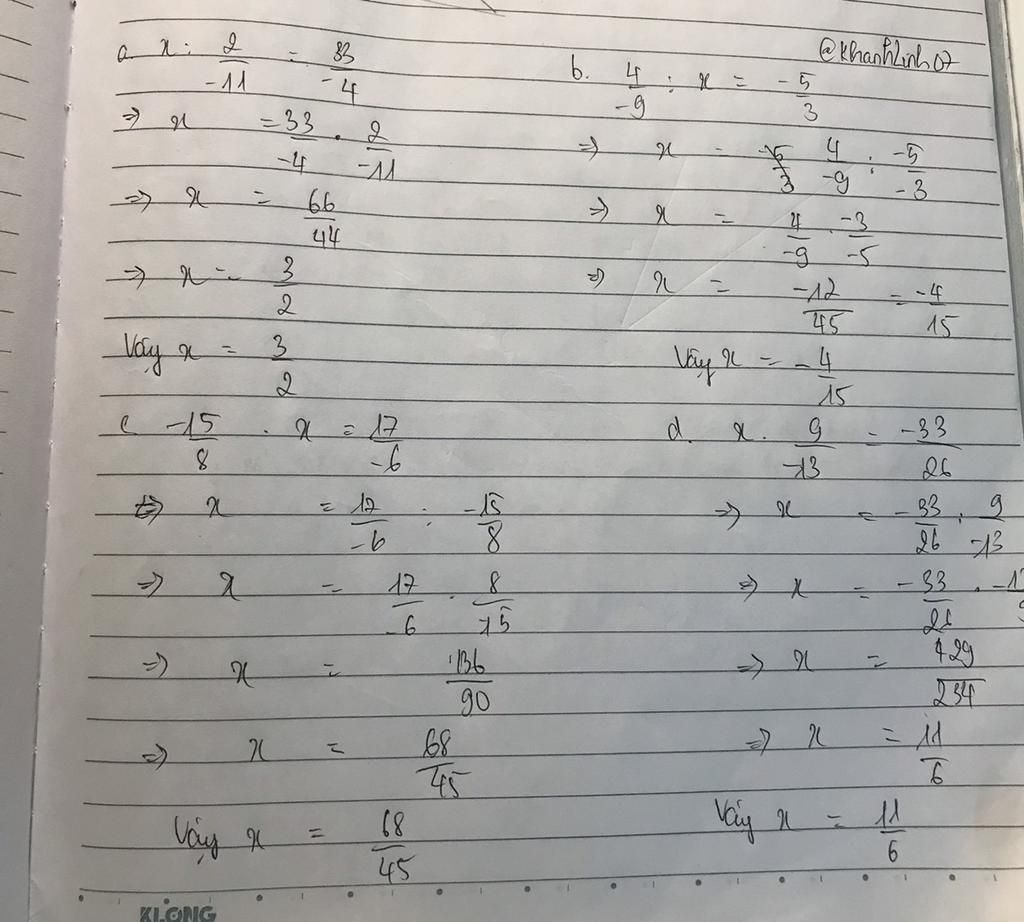 @Khanhlinh07
a. x : 2/-11 = 33/-4
=> x = 33/-4 . 2/-11
=> x = 66/44
=> x = 3/2
Vậy x = 3/2
b. 4/-9 : x = -5/3
=> x = 4/-9 : -5/-3
=> x = 4/-9 . -3/-5
=> x = -12/45 = -4/15
Vậy x = -4/15
c -15/8 . x = 17/-6
=> x = 17/-6 : -15/8
=> x = 17/-6 . 8/-15
=> x = 136/90
=> x = 68/45
Vậy x = 68/45
d. x . 9/-13 = -33/26
=> x = -33/26 : 9/-13
=> x = -33/26 .
=> x = 429/234
=> x = 11/6
Vậy x = 11/6
KLONG